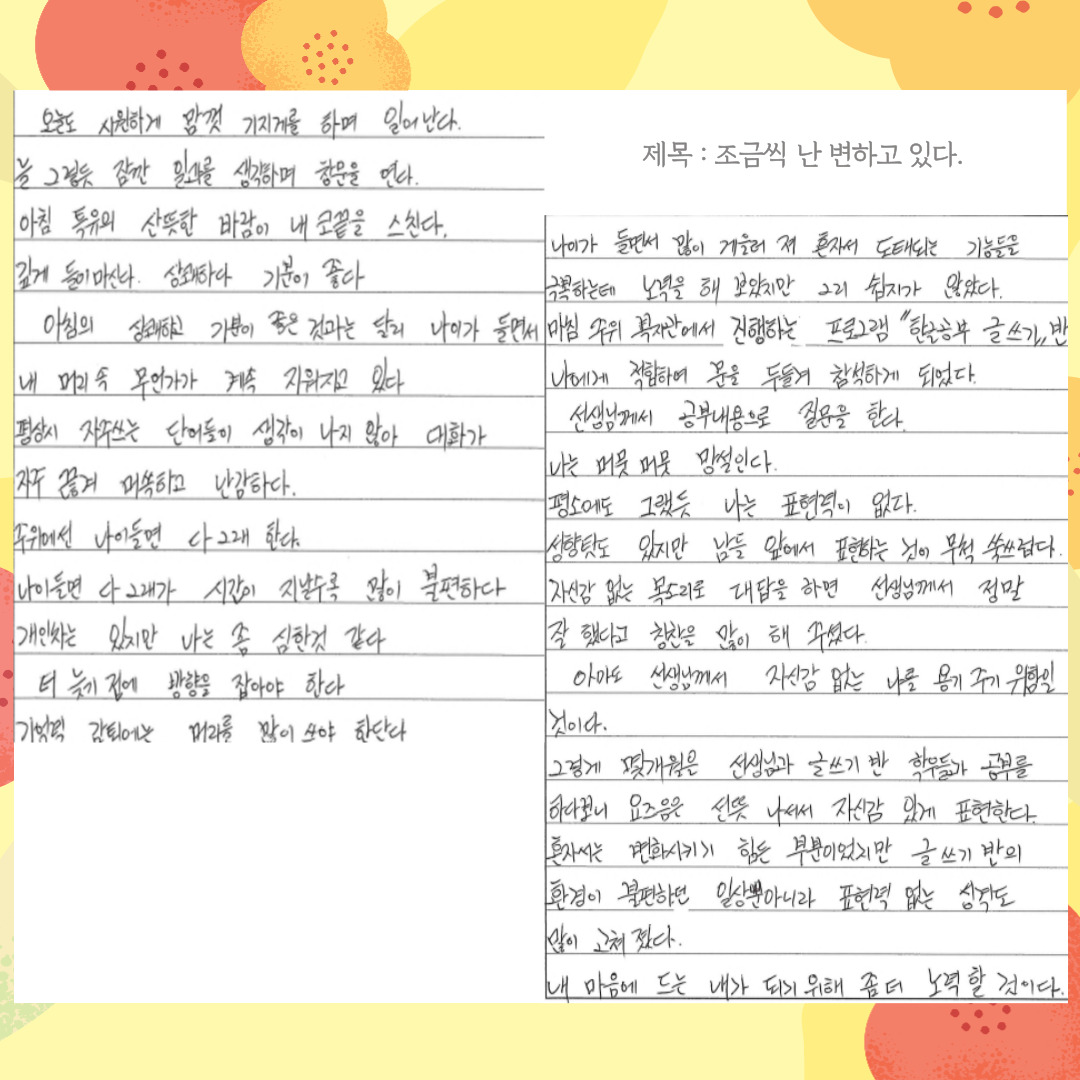 오늘도 시원하게 맘껏 기지게를 하며 일어난다.
늘 그렇듯 잠깐 일과를 생각하며 창문을 연다.
아침 특유의 산뜻한 바람이 내 코끝을 스친다.
깊게 들이마신다. 상쾌하다 기분이 좋다
아침의 상쾌하고 기분이 좋은 것과는 달리 나이가 들면서
내 머리속 무언가가 계속 지워지고 있다
평상시 자주쓰는 단어들이 생각이 나지 않아 대화가
자주 끊겨 머쓱하고 난감하다.
주위에선 나이들면 다 그래 한다.
나이들면 다 그래가 시간이 지날수록 많이 불편하다
개인차는 있지만 나는 좀 심한것 같다
더 늦기 전에 방향을 잡아야 한다
기억력 감퇴에는 머리를 많이 쓰야 한단다
제목 : 조금씩 난 변하고 있다.
나이가 들면서 많이 게을러 져 혼자서 도태되는 기능들을
극복하는데 노력을 해 보았지만 그리 쉽지가 않았다.
마침 주위 복지관에서 진행하는 프로그램 "한글공부 글쓰기" 반
나에게 적합하여 문을 두들겨 참석하게 되었다.
선생님께서 공부내용으로 질문을 한다.
나는 머뭇 머뭇 망설인다.
평소에도 그랬듯 나는 표현력이 없다.
성향탓도 있지만 남들 앞에서 표현하는 것이 무척 쑥쓰럽다.
자신감 없는 목소리로 대답을 하면 선생님께서 정말
잘 했다고 칭찬을 많이 해 주셨다.
아마도 선생님께서 자신감 없는 나를 용기 주기 위함일
것이다.
그렇게 몇개월은 선생님과 글쓰기 반 학우들과 공부를
하다보니 요즈음은 선뜻 나서서 자신감 있게 표현한다.
혼자서는 변화시키기 힘든 부분이었지만 글쓰기 반의
환경이 불편하던 일상뿐아니라 표현력 없는 성격도
많이 고쳐 졌다.
내 마음에 드는 내가 되기 위해 좀 더 노력 할 것이다.